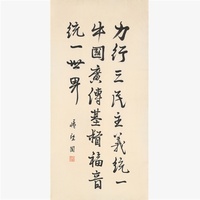 力行三民主義統一
中國廣傳基督福音
統一世界